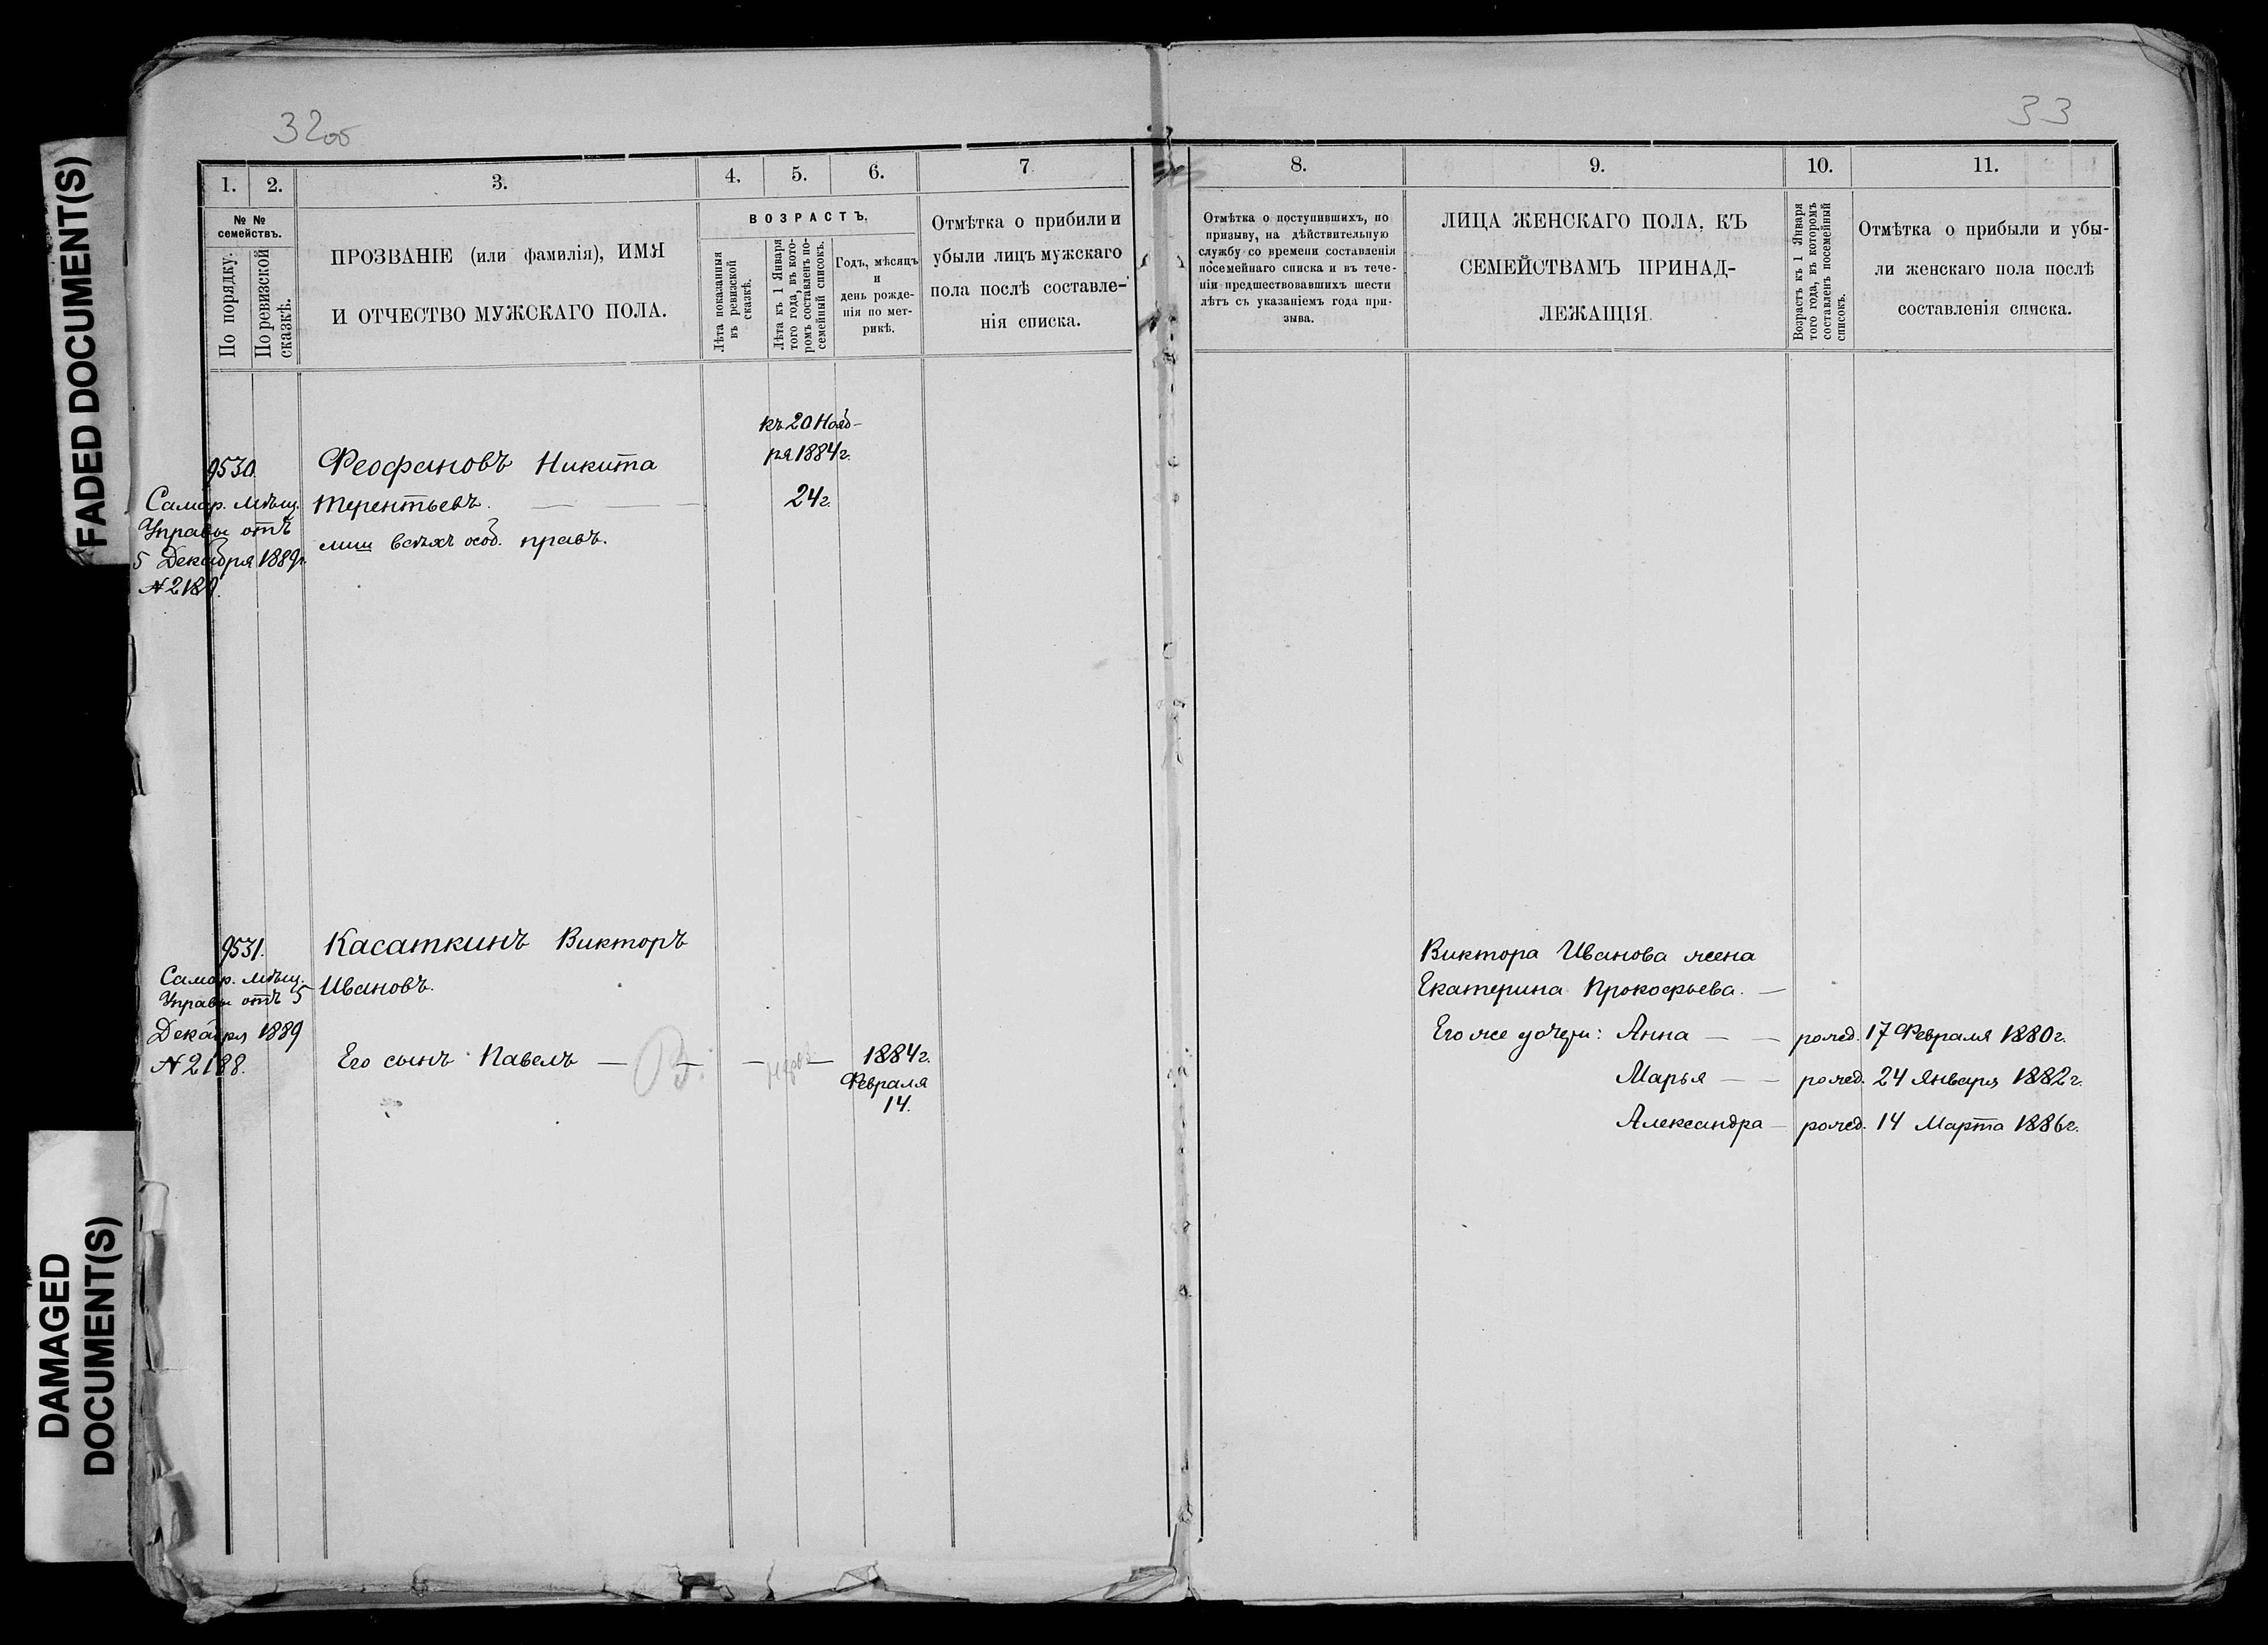 FADED DOCUMENT(S)
DAMAGED
DOCUMENT(S)
32об
1.
2.
3.
4.
5.
6.
7
№ №
семействъ.
По порядку.
По ревизской
сказкѣ.
ПРОЗВАНІЕ (или фамилія), ИМЯ
И ОТЧЕСТВО МУЖСКАГО ПОЛА.
ВОЗРАСТЪ.
Лѣта показанныя
въ ревизской
сказкѣ.
Лѣта къ 1 Января
того года, въ кото-
ромъ составленъ по-
семейный списокъ.
Годъ, мѣсяцъ
и
день рожде-
нія по мет-
рикѣ.
Отмѣтка о прибыли и
убыли лицъ мужскаго
пола послѣ составле-
нія списка.
къ 20 Нояб-
ря 1884 г.
24 г.
9530.
Самар. мѣщ.
Управы отъ
5 Декабря 1889 г.
№
Феофановъ Никита
Терентьевъ.
лиш всѣхъ особ. правъ.
9531.
Самар. мѣщ.
Управы отъ 5
Декабря 1889
№ 2188.
Касаткинъ Викторъ
Ивановъ.
Его сынъ Павелъ
1884 г.
Февраля
14.
33
8.
9.
10.
11.
Отмѣтка о поступившихъ, по
призыву, на дѣйствительную
службу со времени составленія
посемейнаго списка и въ тече-
ніи предшествовавшихъ шести
лѣтъ съ указаніемъ года при-
зыва.
ЛИЦА ЖЕНСКАГО ПОЛА, КЪ
СЕМЕЙСТВАМЪ ПРИНАД-
ЛЕЖАЩІЯ.
Возрастъ къ 1 Января
того года, въ которомъ
составленъ посемейный
списокъ.
Отмѣтка о прибыли и убы-
ли женскаго пола послѣ
составленія списка.
Виктора Иванова жена
Екатерина Прокофьева. —
Его же дочери: Анна — — рожд. 17 Февраля 1880 г.
Марья — — рожд. 24 Января 1882 г.
Александра — рожд. 14 Марта 1886 г.